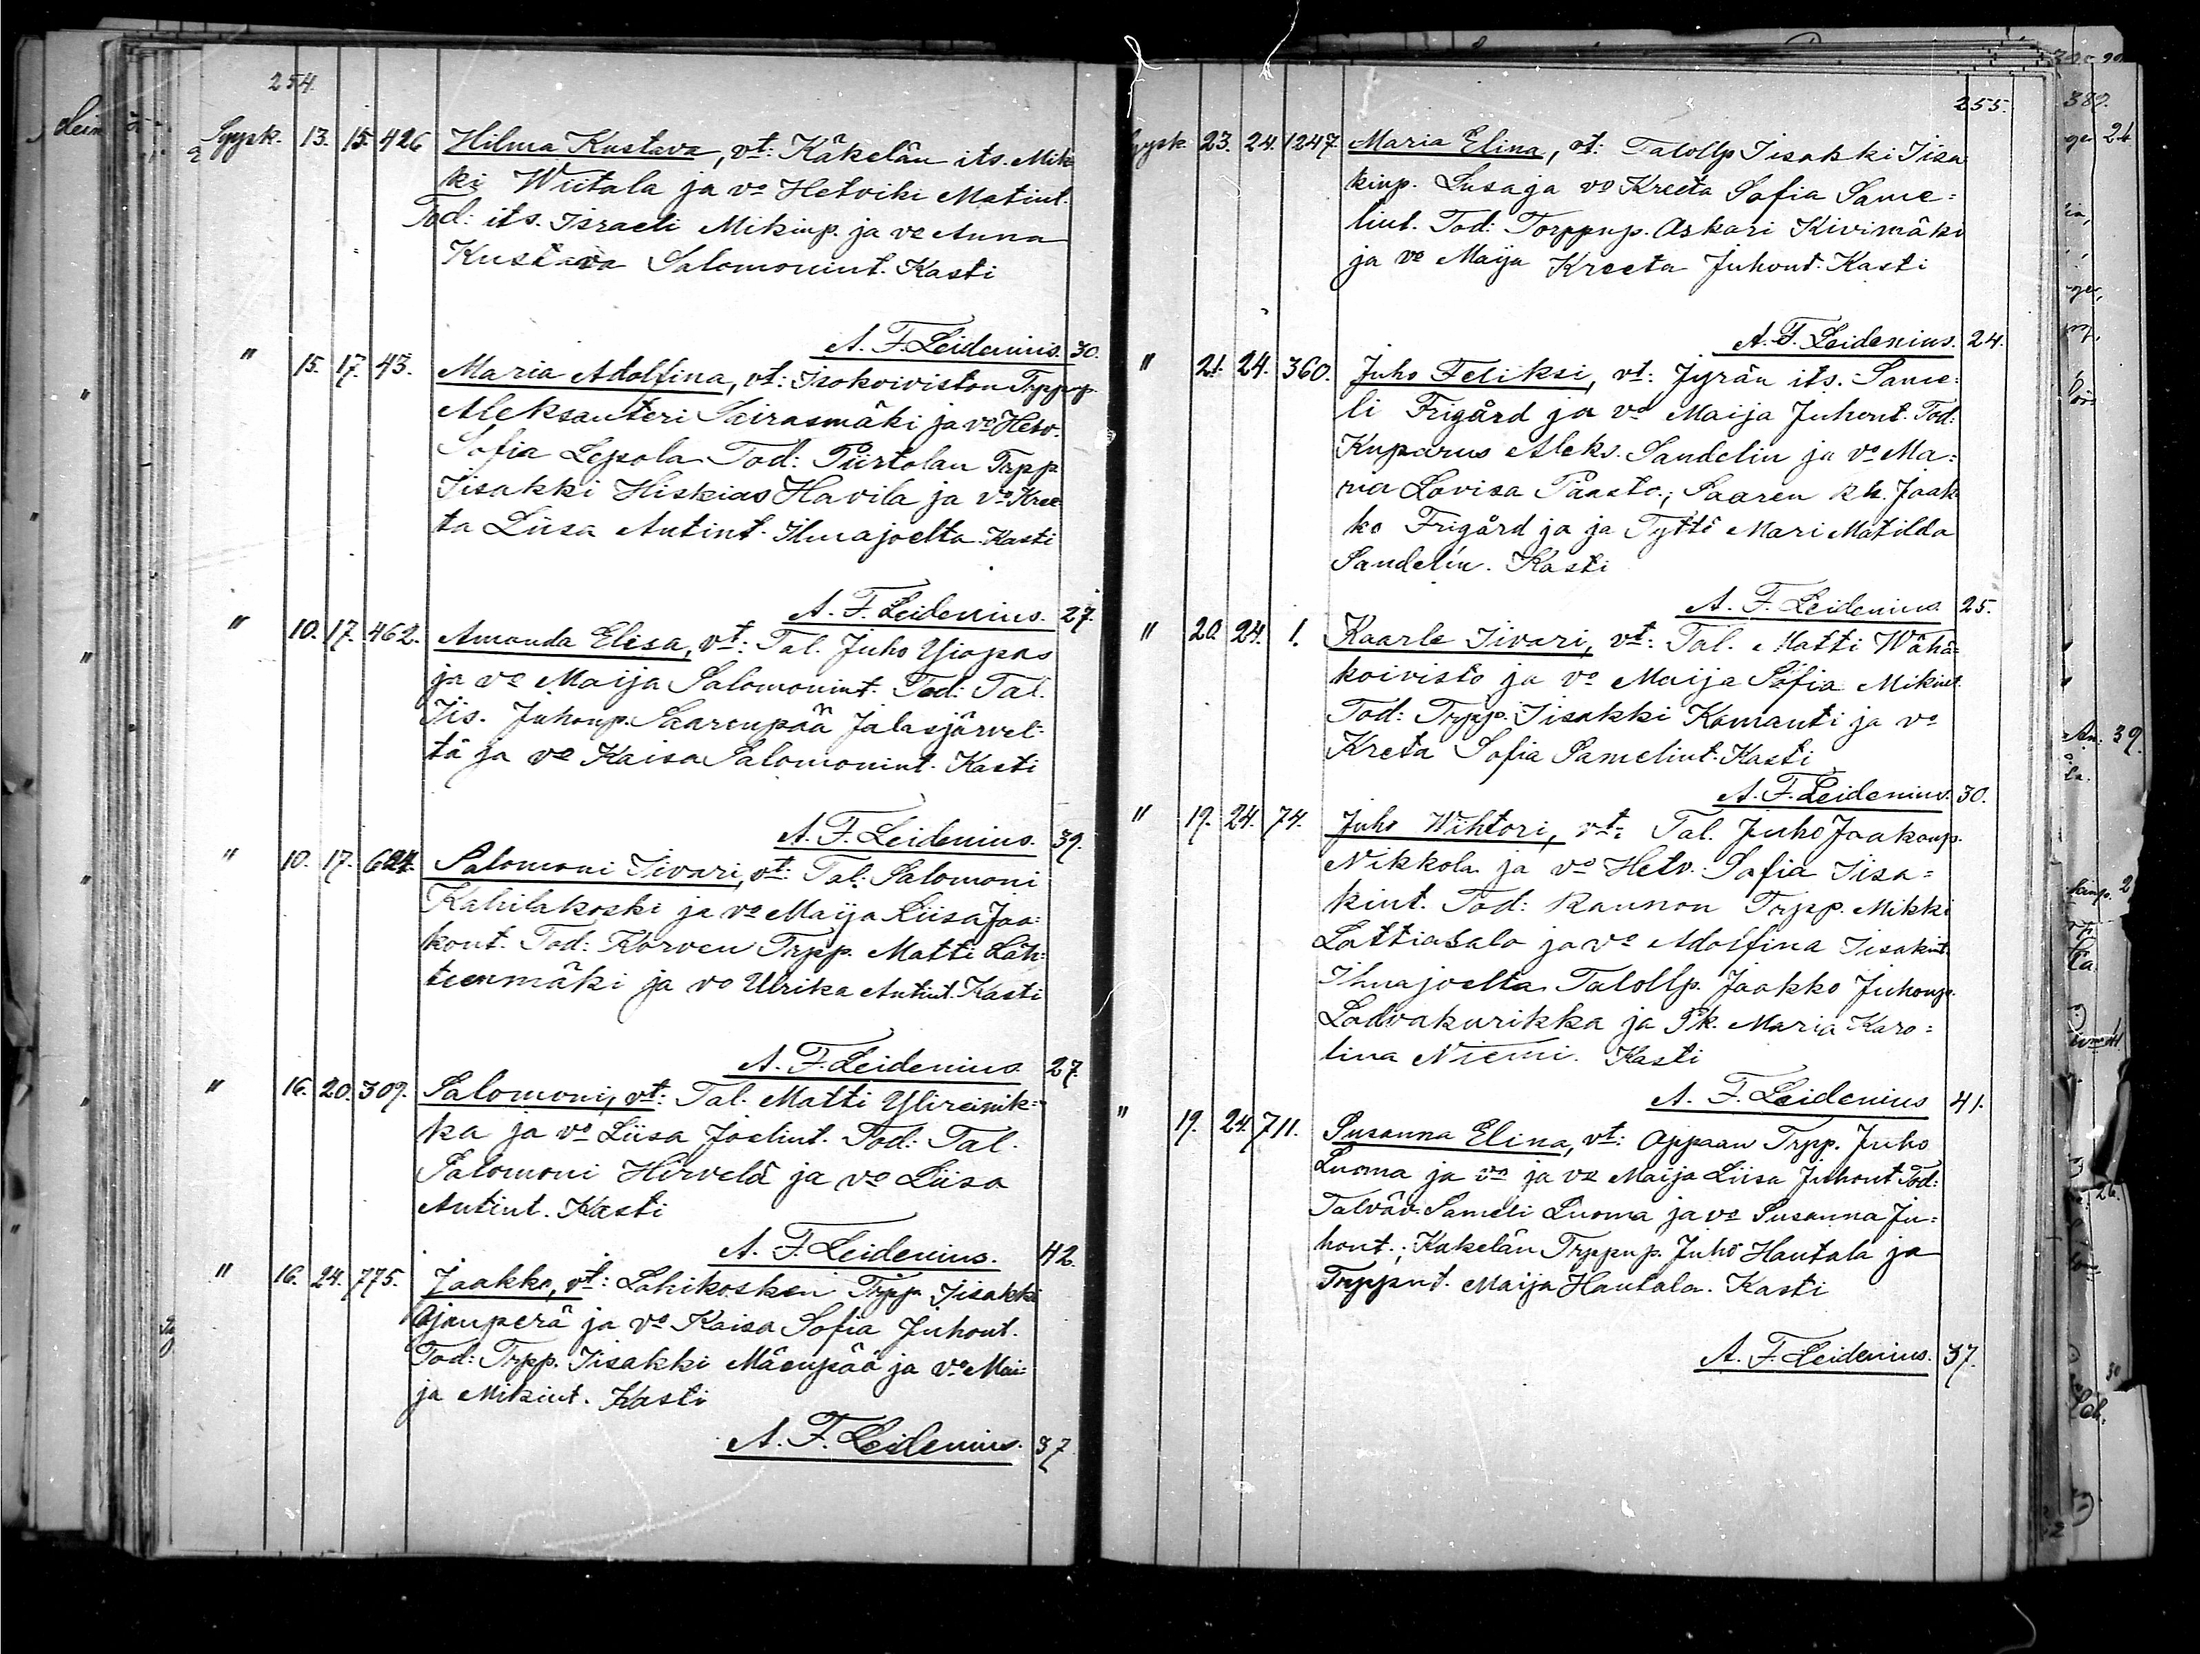 254.
Syysk. 13. 15. 426 Hilma Kustava, vt: Käkelän its. Mik
ki Wiitala ja vo Hetviki Matint.
Tod: its. Israeli Mikinp. ja vo Anna
Kustava Salomonint. Kasti
A. F. Leidenius. 30.
" 15. 17. 43. Maria Adolfina, vt: Isokoiviston Trppnp.
Aleksanteri Seirasmäki ja vo Hetv.
Sofia Lepola Tod: Piirtolan Trpp
Iisakki Hiskias Havila ja vo Kree
ta Liisa Antint. Ilmajoelta. Kasti
A. F. Leidenius. 27.
" 10. 17. 462. Amanda Elisa, vt: Tal. Juho Yiopas
ja vo Maija Salomonint. Tod: Tal.
Iis. Juhonp. Saarenpää Jalasjärvel:
tä ja vo Kaisa Salomonint. Kasti
A. F. Leidenius. 39.
" 10. 17. 624. Salomoni Iivari, vt: Tal: Salomoni
Kahilakoski ja vo Maija Liisa Jaa:
kont. Tod: Korven Trpp. Matti Läh:
teenmäki ja vo Ulrika Antint. Kasti
A. F. Leidenius 27.
" 16. 20. 309. Salomoni, vt: Tal. Matti Ylireinik:
ka ja vo Liisa Joelint. Tod: Tal.
Salomoni Hirvelä ja vo Liisa
Antint. Kasti
A. F. Leidenius. 42.
" 16. 24. 775. Jaakko, vt: Lahikosken Trpp. Iisakki
Ojanperä ja vo Kaisa Sofia Juhont.
Tod: Trpp. Iisakki Mäenpää ja vo Mai:
ja Mikint. Kasti
A. F. Leidenius. 37
255.
Syysk. 23. 24. 1247. Maria Elina, vt: Talollp Iisakki Iisa
kinp. Lusa ja vo Kreeta Sofia Same:
lint. Tod: Torppnp. Askari Kivimäki
ja vo Maija Kreeta Juhont. Kasti
A. F. Leidenius. 24.
" 21. 24. 360. Juho Feliksi, vt: Jyrän its. Same:
li Frigård ja vo Maija Juhont. Tod:
Kuparus Aleks. Sandelin ja vo Ma:
ria Lovisa Paasto.; Saaren kh. Jaak
ko Frigård ja ja Tyttö Mari Matilda
Sandelin. Kasti
A. F. Leidenius. 25.
" 20. 24. 1. Kaarle Iivari, vt: Tal. Matti Wähä:
koivisto ja vo Maija Sofia Mikint.
Tod: Trpp. Iisakki Kamanti ja vo
Kreta Sofia Samelint. Kasti
A. F. Leidenius. 30.
" 19. 24. 74. Juho Wihtori, vt: Tal. Juho Jaakonp.
Nikkola ja vo Hetv. Sofia Iisa=
kint. Tod: Rannon Trpp. Mikki
Lattiasalo ja vo Adolfina Iisakint.
Ilmajoelta Talollp. Jaakko Juhonp.
Ladvakurikka ja Pk. Maria Karo=
lina Niemi. Kasti
A. F. Leidenius 41.
" 19. 24. 711. Susanna Elina, vt: Oppaan Trpp. Juho
Luoma ja vo ja vo Maija Liisa Juhont Tod:
Talväv. Sameli Luoma ja vo Susanna Ju:
hont.; Kakelän Trppnp. Juho Hautala ja
Trppnt. Maija Hautala. Kasti
A. F. Leidenius. 37.